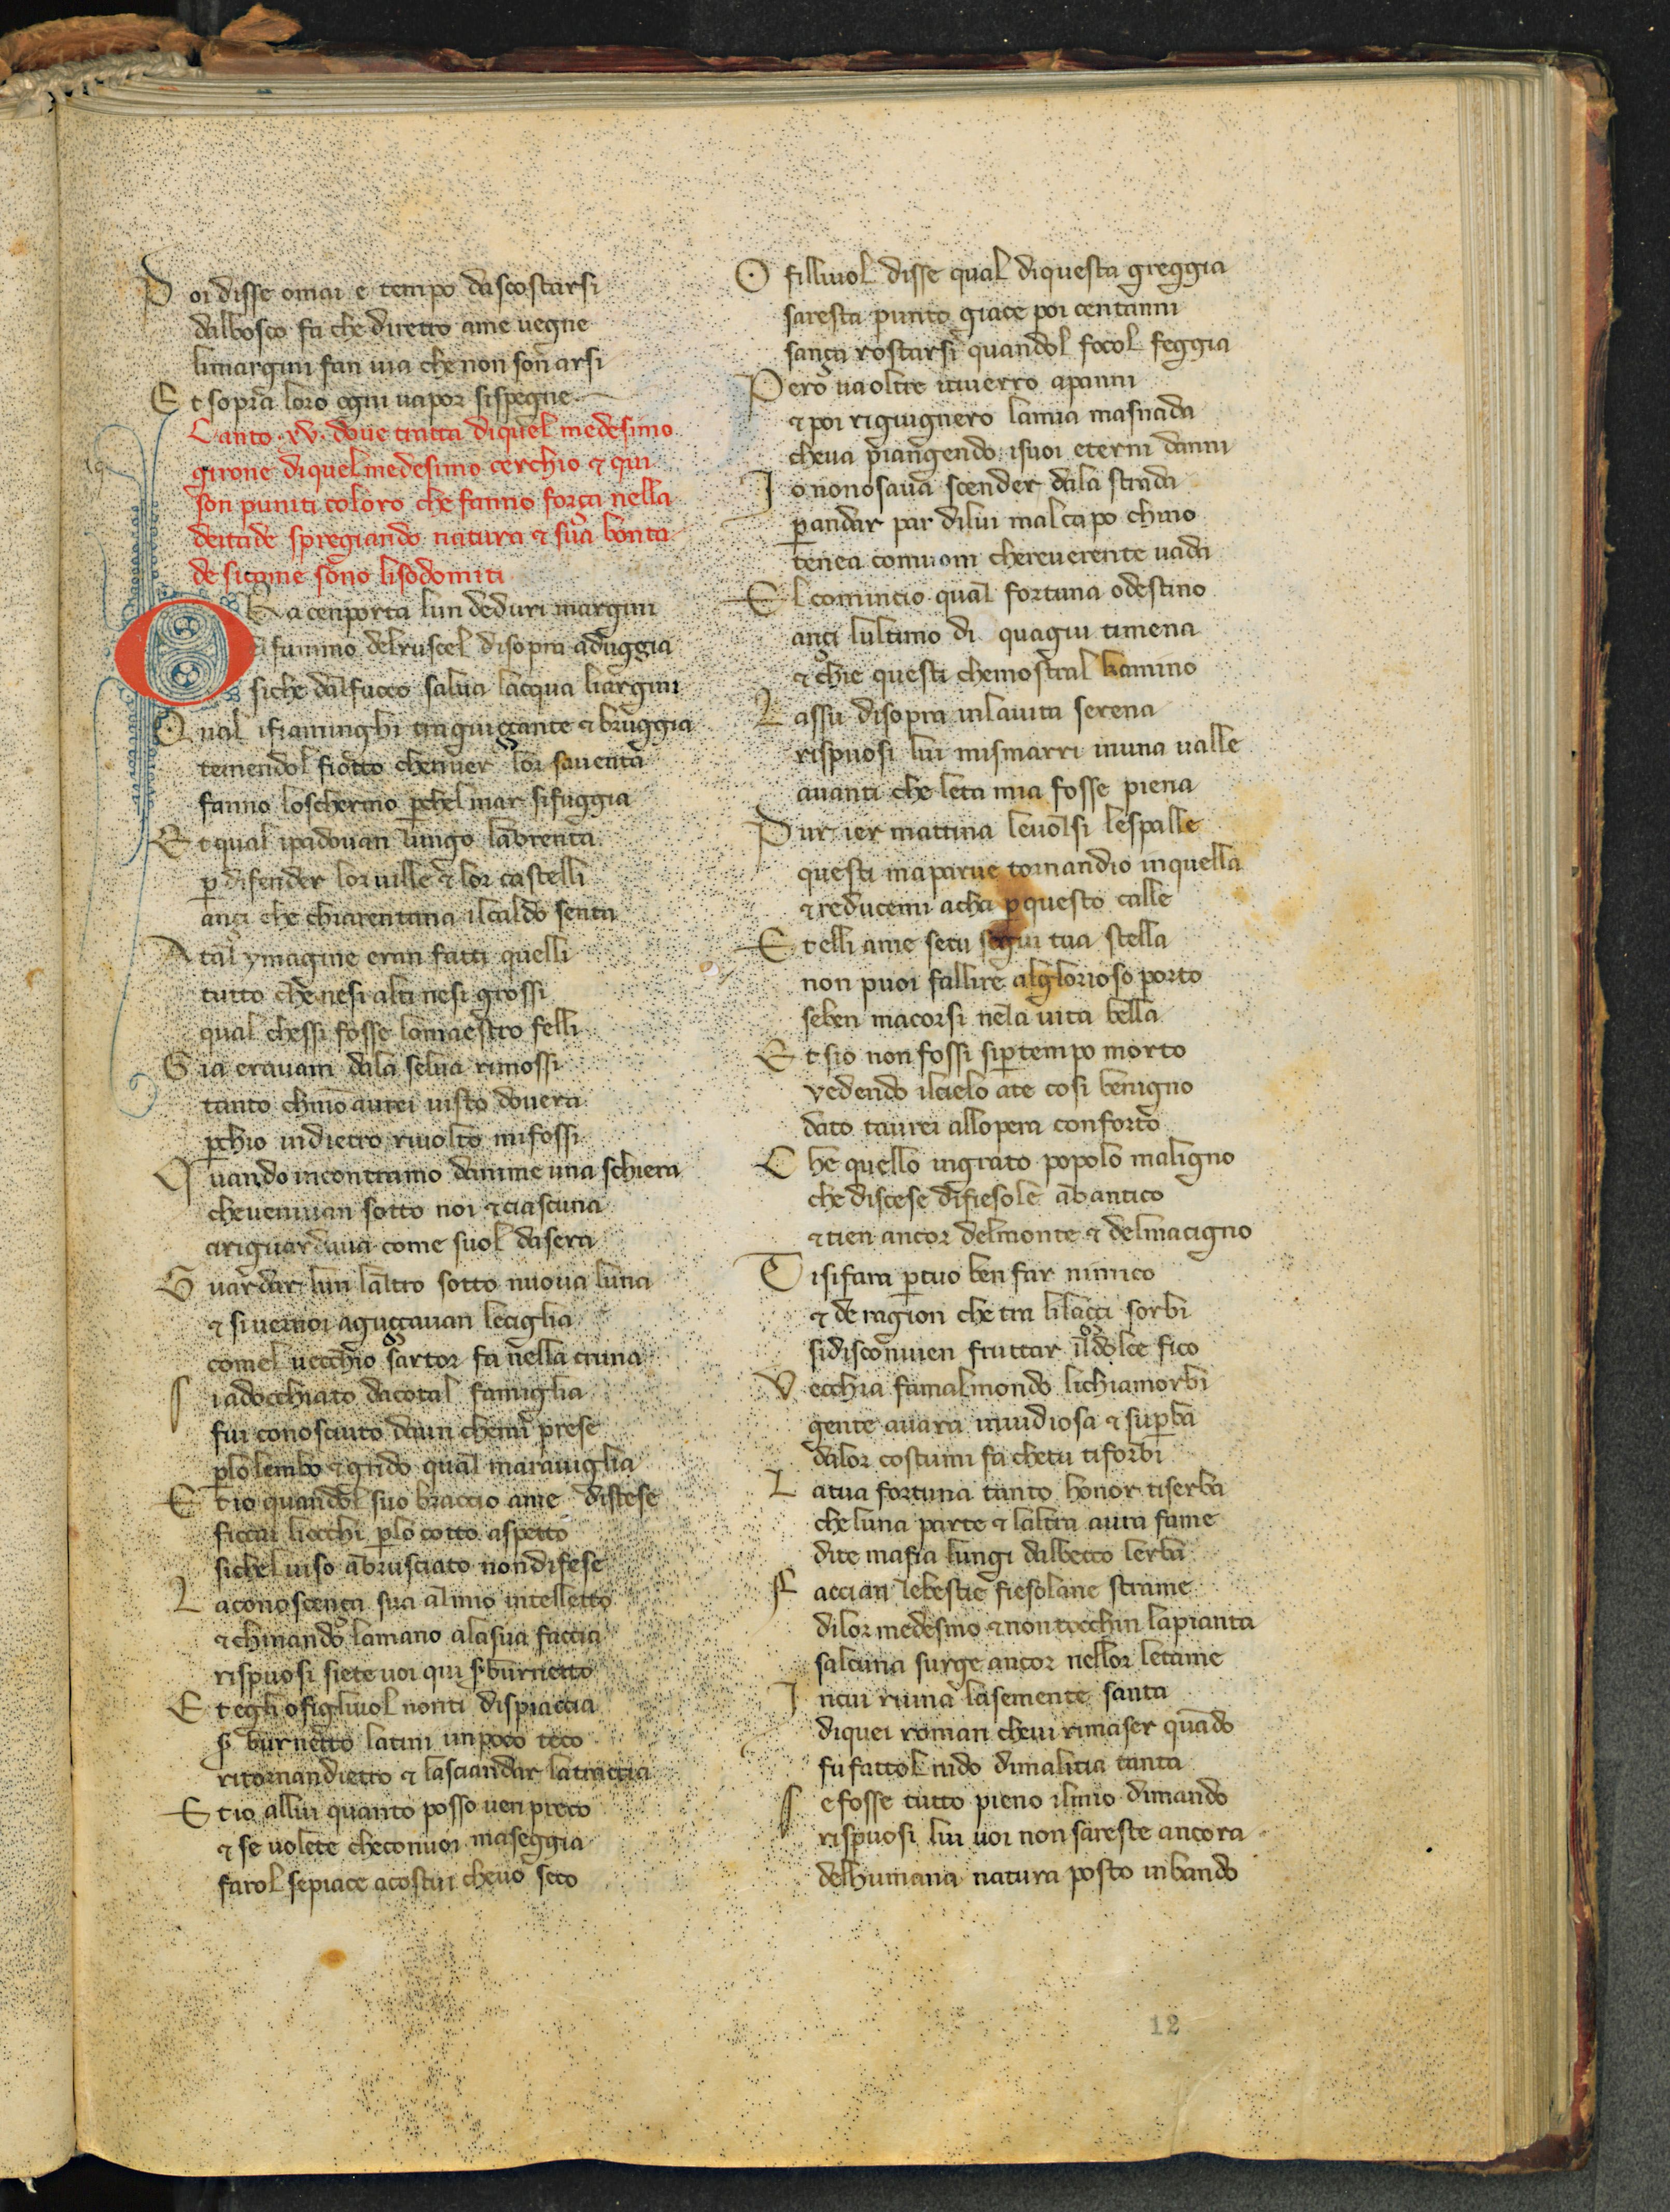 Poi disse omai e tempo dascostarsi
dalbosco fa che diretro ame uegne
limargini fan uia che non son arsi
Et sopra loro ogni uapor sispegne
Canto .xv. doue tratta diquel medesimo
girone diquel medesimo cerchio & qui
son puniti coloro che fanno força nella
deitade spregiando natura & sua bonta
de sicome sono lisodomiti
ORa cenporta lun deduri margini
el fummo delruscel disopra aduggia
siche dalfuoco salua lacqua liargini
Qual ifiaminghi tra guiççante & bruggia
temendol fiotto chenuer lor sauenta
fanno loschermo perchel mar sifuggia
Et qual ipadouan lungo labrenta
per difender lor uille & lor castelli
ançi che chiarentana ilcaldo senta
A tal ymagine eran fatti quelli
tutto che nesi alti nesi grossi
qual chessi fosse lomaestro felli
Gia erauam dala selua rimossi
tanto chinon aurei uisto douera
perchio indietro riuolto mifossi
Quando incontramo danime una schiera
cheueniuan sotto noi & ciascuna
ciriguardaua come suol dasera
Guardar lun laltro sotto nuoua luna
& siuernoi aguççauan leciglia
comel uecchio sartor fa nella cruna
Siadocchiato dacotal famiglia
fui conosciuto daun chemi prese
perlo lembo & grido qual marauiglia
Et io quandol suo braccio ame distese
ficcai liocchi perlo cotto aspetto
sichel uiso abrusciato nondifese
La conoscença sua al mio intelletto
& chinando lamano alasua faccia
rispuosi siete uoi qui ser burnetto
Et egli ofigliuol nonti dispiaccia
ser burnetto latini unpoco teco
ritornandietro & lasciandar latraccia
Et io allui quanto posso uen preco
& se uolete checonuoi maseggia
farol sepiace acostui cheuo seco
O filliuol disse qual diquesta greggia
saresta punto giace poi centanni
sança rostarsi quandol focol feggia
Pero uaoltre iuiuerro apanni
& poi rigiugnero lamia masnada
cheua piangendo isuoi eterni danni
Io nonosaua scender dala strada
perandar par dilui malcapo chino
tenea comuom chereuerente uada
El comincio qual fortuna odestino
ançi lultimo di quagiu timena
& chie questi chemostral kamino
Lassu disopra inlauita serena
rispuosi lui mismarri inuna ualle
auanti che leta mia fosse piena
Pur ier mattina leuolsi lespalle
questi maparue tornandio inquella
& reducemi acha perquesto calle
Et elli ame setu segui tua stella
non puoi fallire alglorioso porto
seben macorsi nela uita bella
Et sio non fossi sipertempo morto
vedendo ilcielo ate cosi benigno
dato taurei allopera conforto
Che quello ingrato popolo maligno
che discese difiesole abantico
& tien ancor delmonte & delmacigno
Tisifara pertuo ben far nimico
& de ragion che tra lilaççi sorbi
sidisconuien fruttar ildolce fico
Vecchia famalmondo lichiamorbi
gente auara inuidiosa & superba
dalor costumi fa chetu tiforbi
La tua fortuna tanto honor tiserba
che luna parte & laltra aura fame
dite mafia lungi dalbecco lerba
Faccian lebestie fiesolane strame
dilor medesmo & nontocchin lapianta
salcuna surge ancor nellor letame
Incui riuiua lasemente santa
diquei roman cheui rimaser quando
fu fattol nido dimalitia tanta
Se fosse tutto pieno ilmio dimando
rispuosi lui uoi non sareste ancora
delhumana natura posto inbando
12